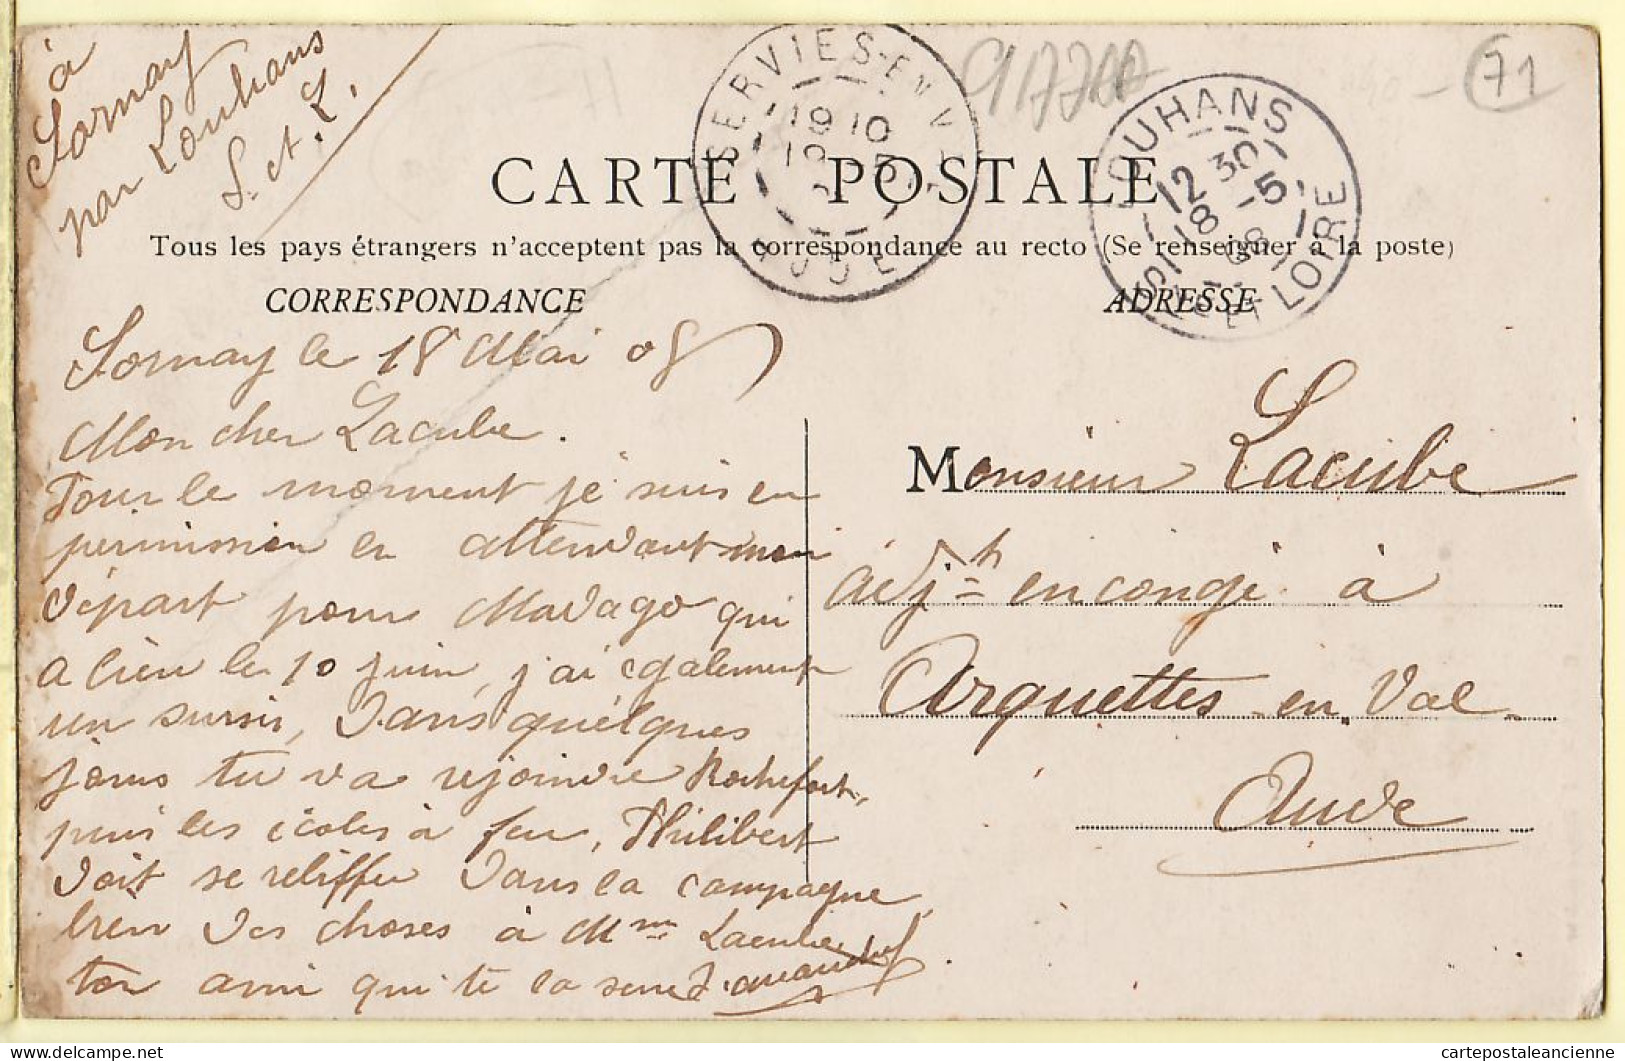 à
Sornay
par Louhans
S. et L.
91770
71
SERVIES-EN-VAL
19 10
AUDE
LOUHANS
12 30
18 -5
08
SAÔNE ET LOIRE
CARTE POSTALE
Tous les pays étrangers n'acceptent pas la correspondance au recto (Se renseigner à la poste)
CORRESPONDANCE
ADRESSE
Sornay le 18 Mai 08
Mon cher Lacube.
Pour le moment je suis en
permission en attendant mon
départ pour Madago qui
a lieu le 10 juin, j'ai également
un sursis, dans quelques
jours tu va rejoindre Rochefort,
puis les écoles à feu, Philibert
doit se reliffer dans la campagne
bien des choses à Mme Lacube
ton ami qui te la serre
Monsieur Lacube
adjt en congé à
Arquettes en Val
Aude
cartepostaleancienne.com
cartepostaleancienne